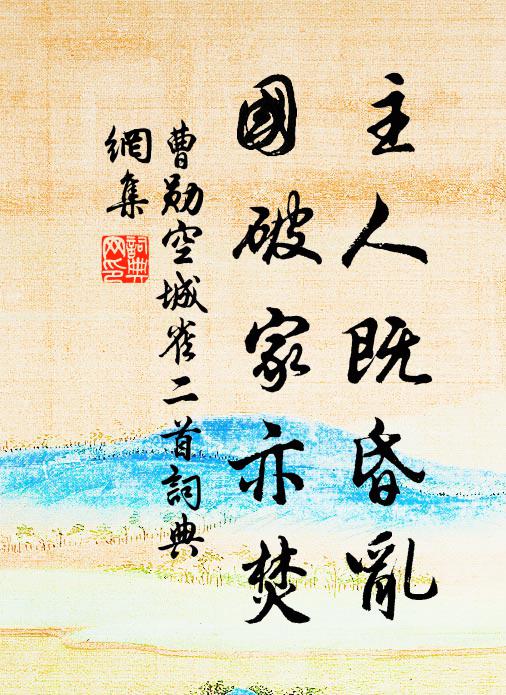 主人既昏亂
國破家亦焚
曹勛空城雀二首詞典
網集
詞典
网印